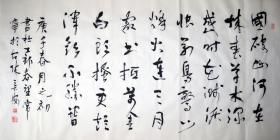 國破山河在
城春草木深
感時花濺淚
恨別鳥驚心
烽火連三月
家書抵萬金
白頭搔更短
渾欲不勝簪
庚子春月之初
書杜工部春望